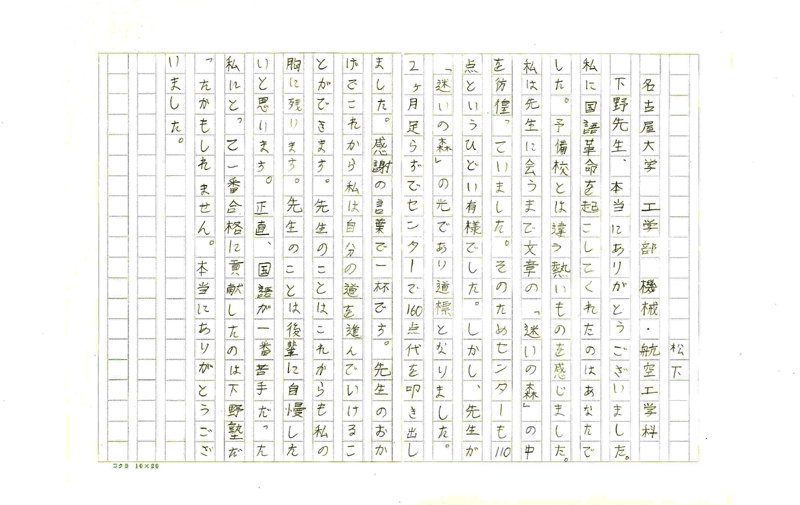 名古屋大学 工学部 機械・航空工学科
松下
下野先生、本当にありがとうございました。
私に国語革命を起こしてくれたのはあなたで
した。予備校とは違う熱いものを感じました。
私は先生に会うまで文章の「迷いの森」の中
を彷徨っていました。そのためセンターも110
点というひどい有様でした。しかし、先生が
「迷いの森」の光であり道標となりました。
2ヶ月足らずでセンターで160点代を叩き出し
ました。感謝の言葉で一杯です。先生のおか
げでこれから私は自分の道を進んでいけるこ
とができます。先生のことはこれからも私の
胸に残ります。先生のことは後輩に自慢した
いと思います。正直、国語が一番苦手だった
私にとって一番合格に貢献したのは下野塾だ
ったかもしれません。本当にありがとうござ
いました。
コクヨ 10×20